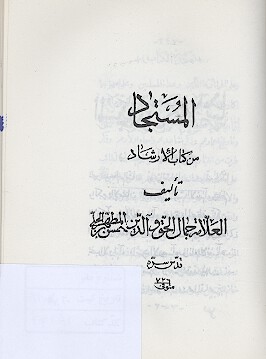 المستجاد
من كتاب الارشاد
تأليف
العلامة جمال الحق والدين الحسن بن المطهر الحلي
قدس سره
متوفى ٧٢٦